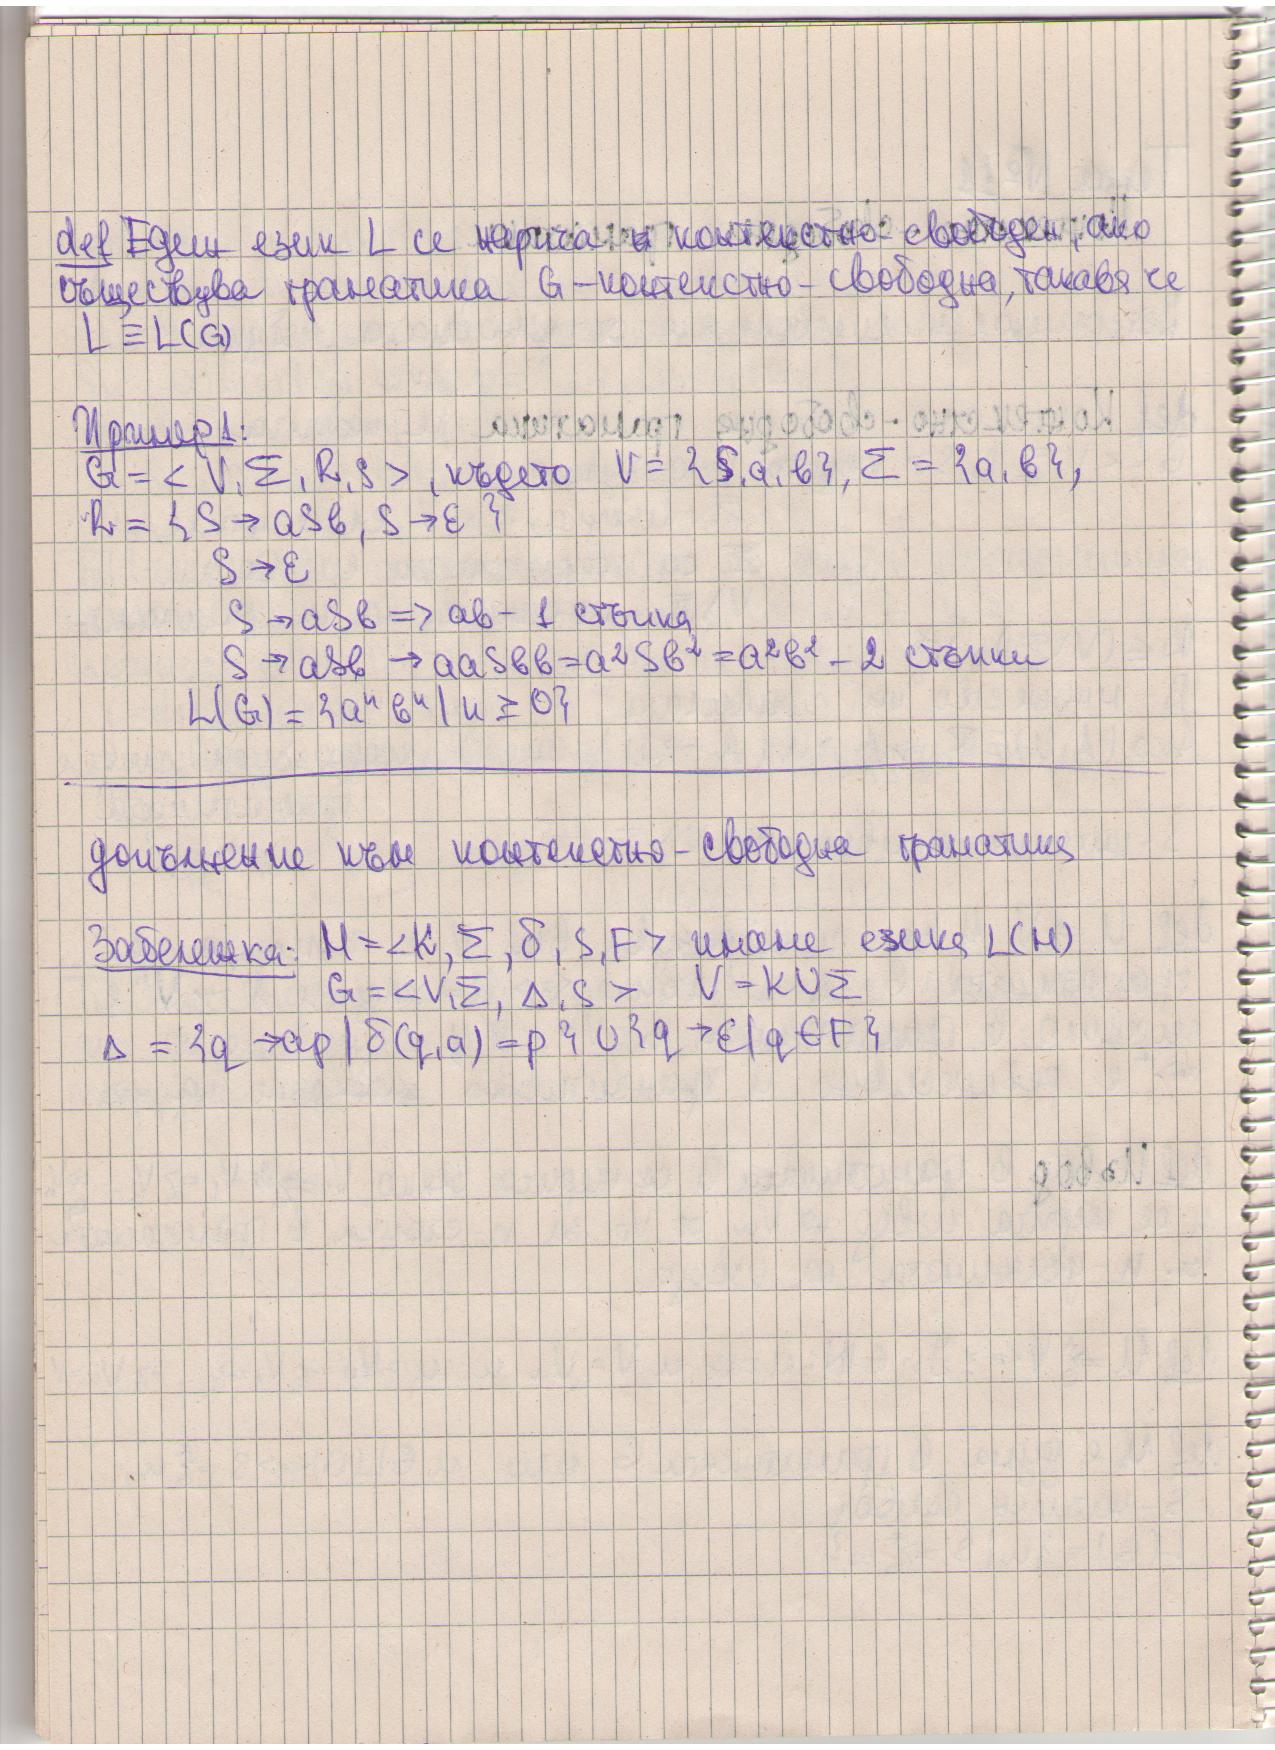 def Един език L се нарича и контекстно-свободен, ако
съществува граматика G-контекстно-свободна, такава че
L ≡ L(G)
Пример1:
G = < V, Σ, R, S >, където V = {S, a, b}, Σ = {a, b},
R = {S → aSb, S → ε }
S → ε
S → aSb => ab - 1 стъпка
S → aSb → aaSbb = a²Sb² = a²b² - 2 стъпки
L(G) = {aⁿ bⁿ | n ≥ 0}
допълнение към контекстно-свободна граматика
Забележка: M = <K, Σ, δ, S, F> имаме езика L(M)
G = <V, Σ, Δ, S> V = K U Σ
Δ = {q → ap | δ(q, a) = p} U {q → ε | q ∈ F}